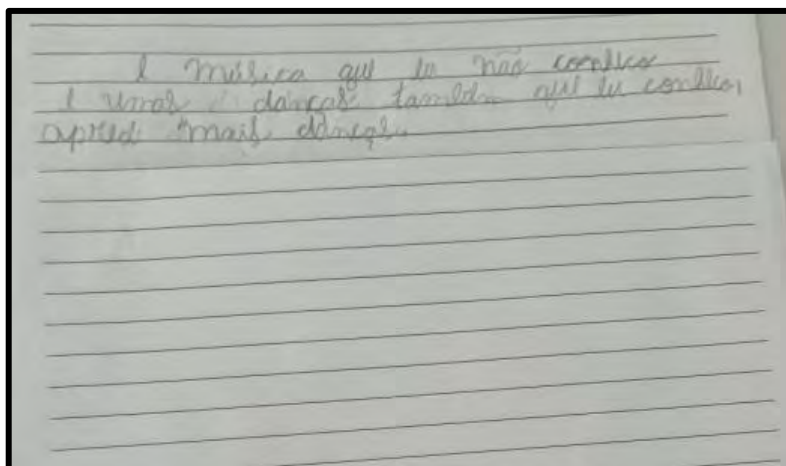 e música que eu não conheço
e umas danças também que eu conheci,
aprendi mais danças.